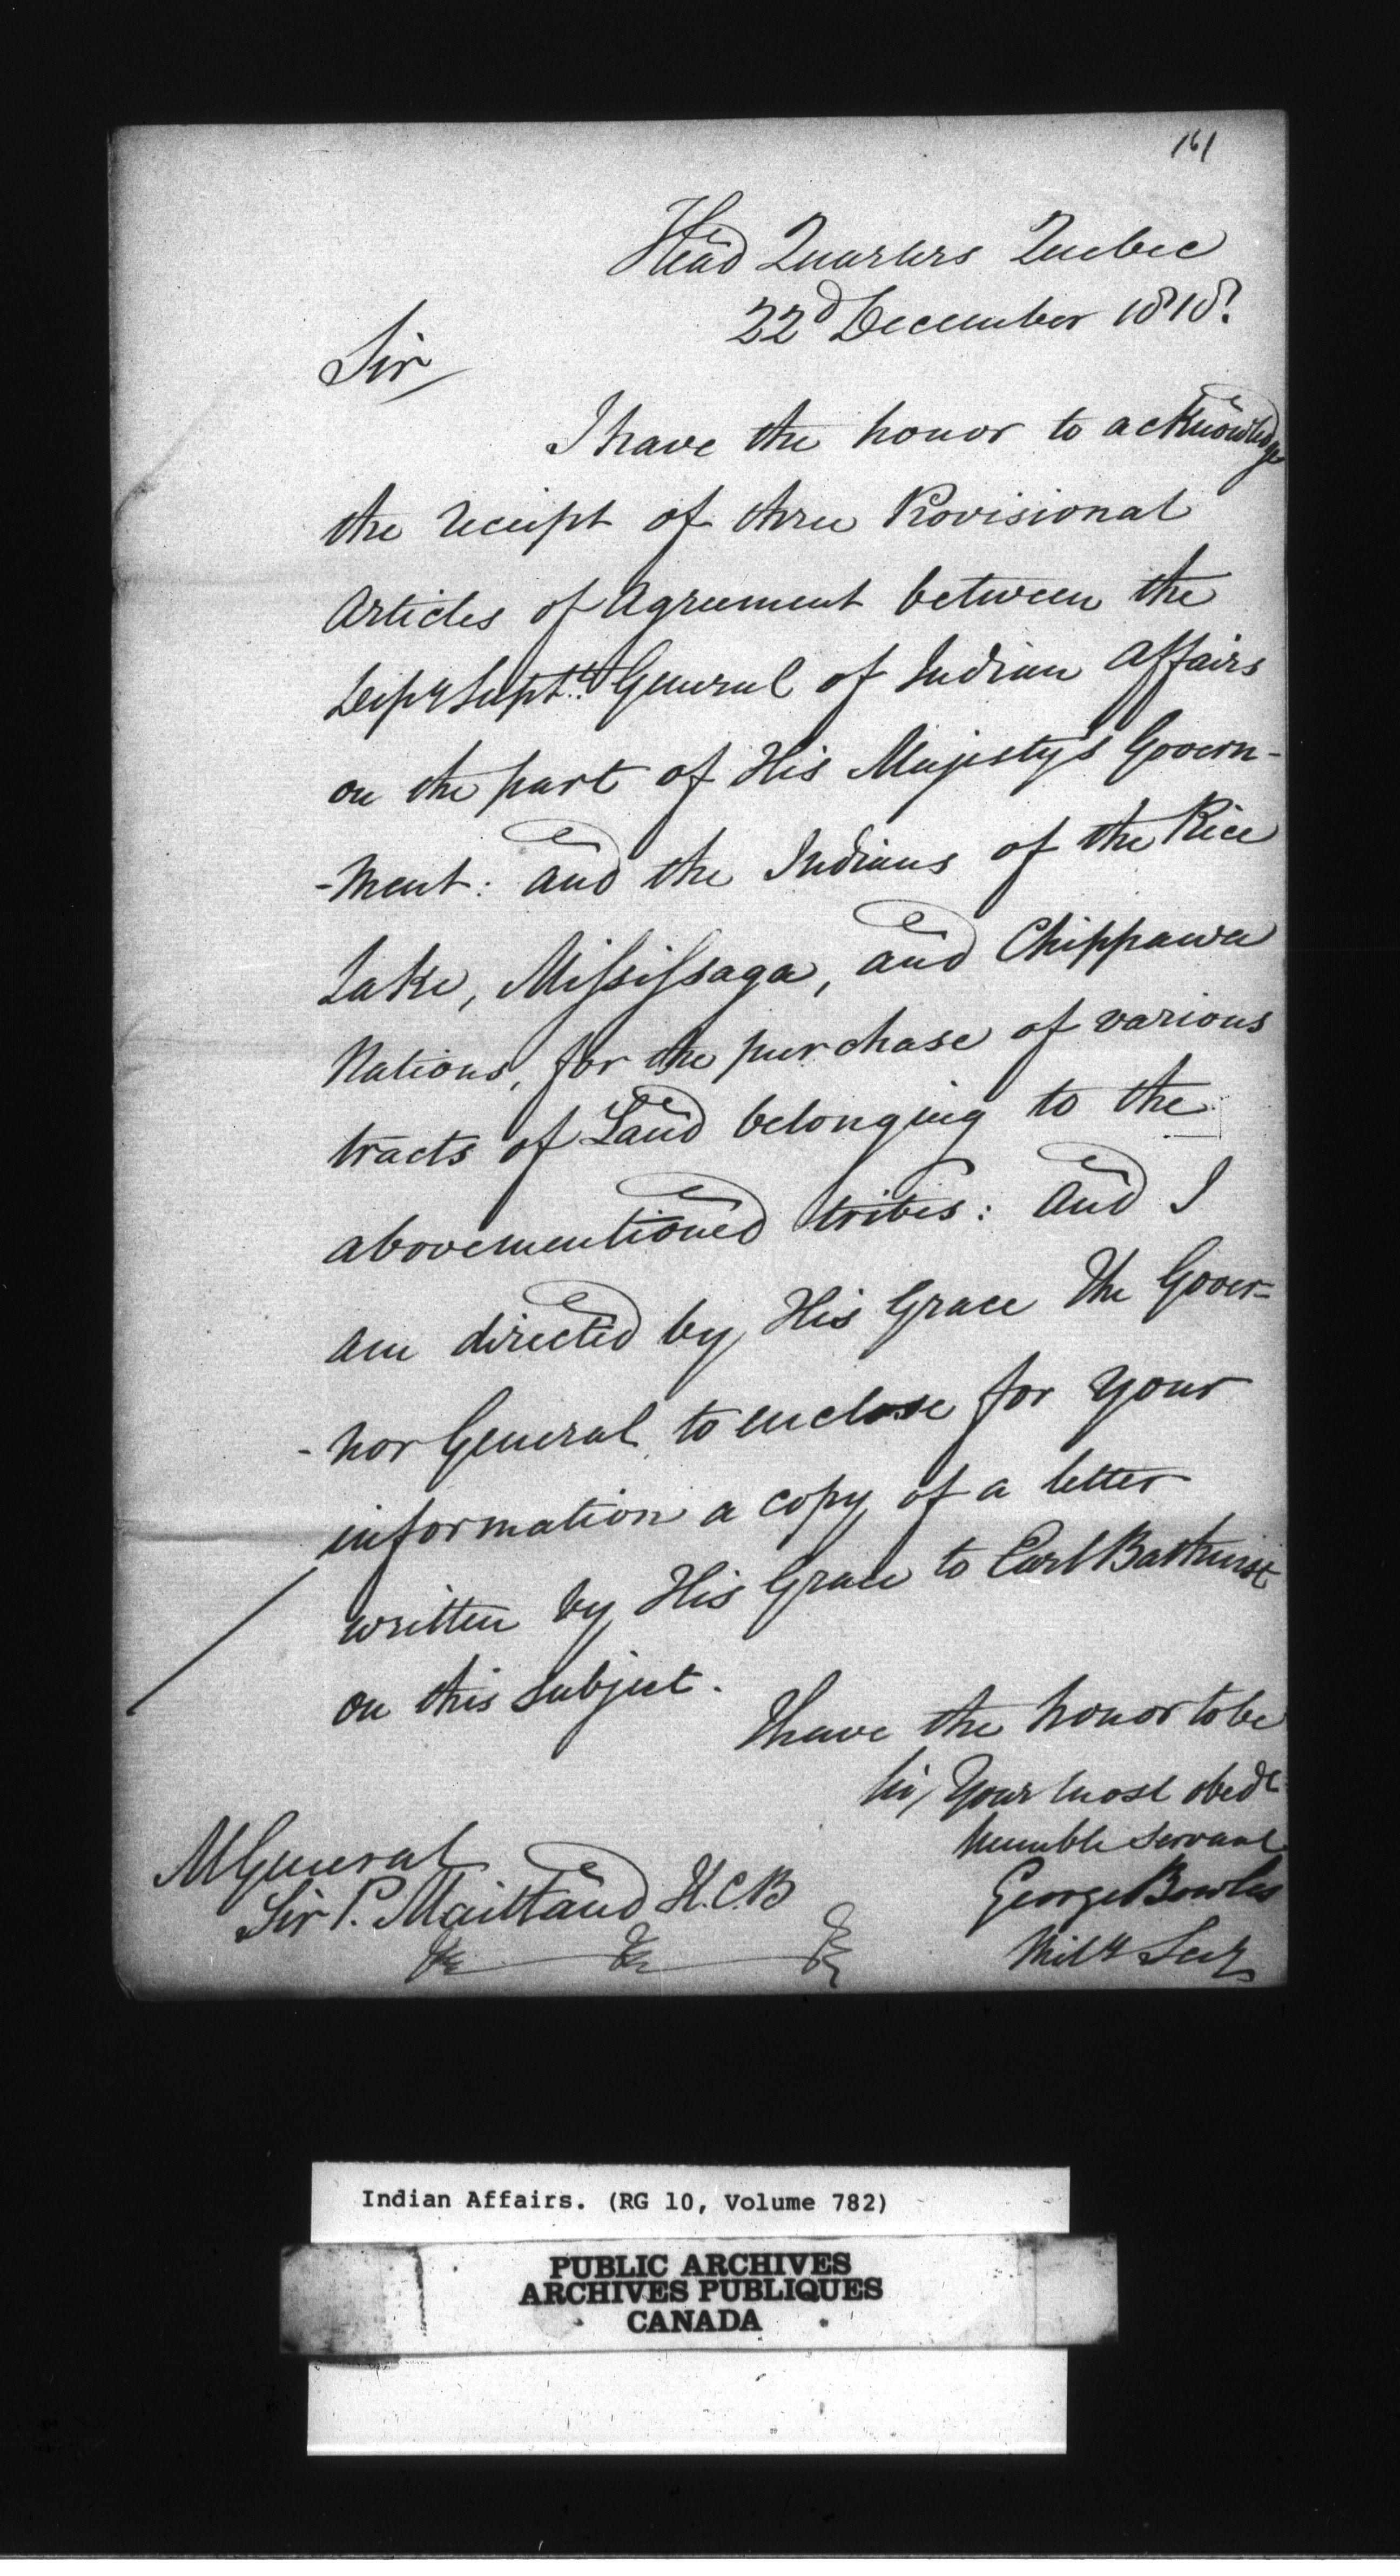 161
Head Quarters Quebec
22d December 1818.
Sir
I have the honor to acknowledge
the receipt of three Provisional
Articles of Agreement between the
Depy Supt. General of Indian Affairs
on the part of His Majesty's Govern-
-ment: and the Indians of the Rice
Lake, Mississaga, and Chippawa
Nations, for the purchase of various
tracts of Land belonging to the
abovementioned tribes: and I
am directed by His Grace The Gover=
-nor General to enclose for your
information a copy of a letter
written by His Grace to Earl Bathurst
on this subject.
I have the honor to be
Sir, Your most obedt
humble servant
George Bowles
Mily Secy
M General
Sir P. Maitland K.C.B
&c &c &c
Indian Affairs. (RG 10, Volume 782)
PUBLIC ARCHIVES
ARCHIVES PUBLIQUES
CANADA